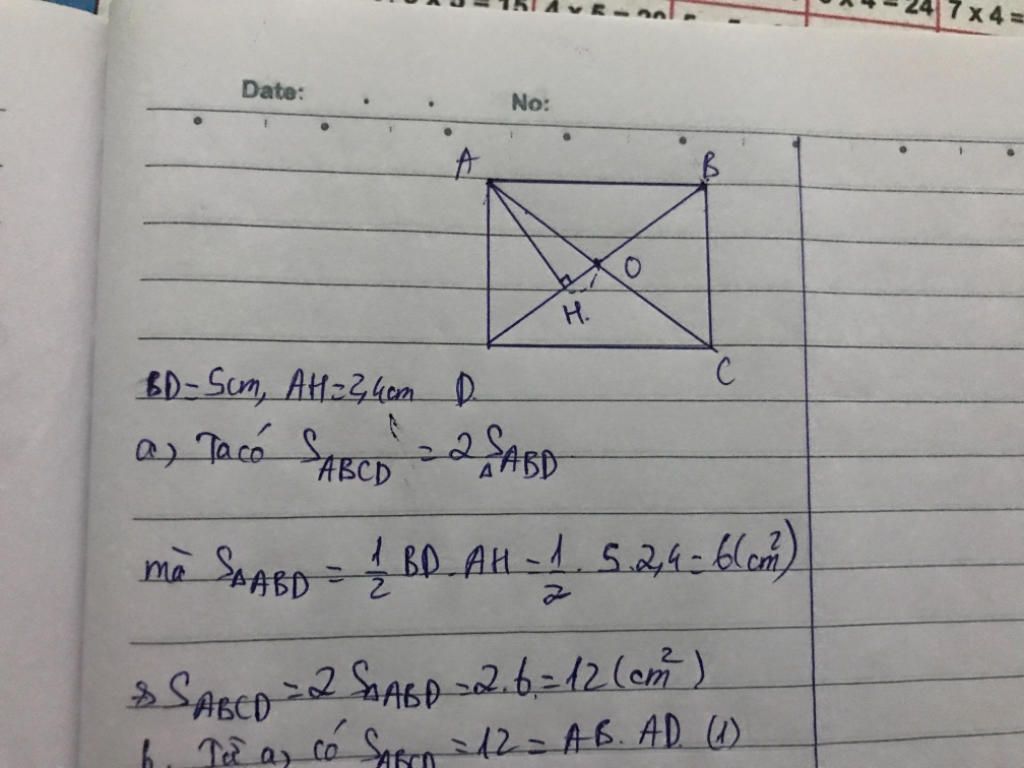 = 15 4 x 5 = 20 x 4 = 24 7 x 4 =
Date: No:
A B
O
H.
C
BD = 5cm, AH = 2,4cm D
a) Ta có S ABCD = 2 S ΔABD
mà S ΔABD = 1/2 BD . AH = 1/2 . 5 . 2,4 = 6 (cm²)
S ABCD = 2 S ΔABD = 2 . 6 = 12 (cm²)
b. Từ a) có S ABCD = 12 = AB . AD (1)